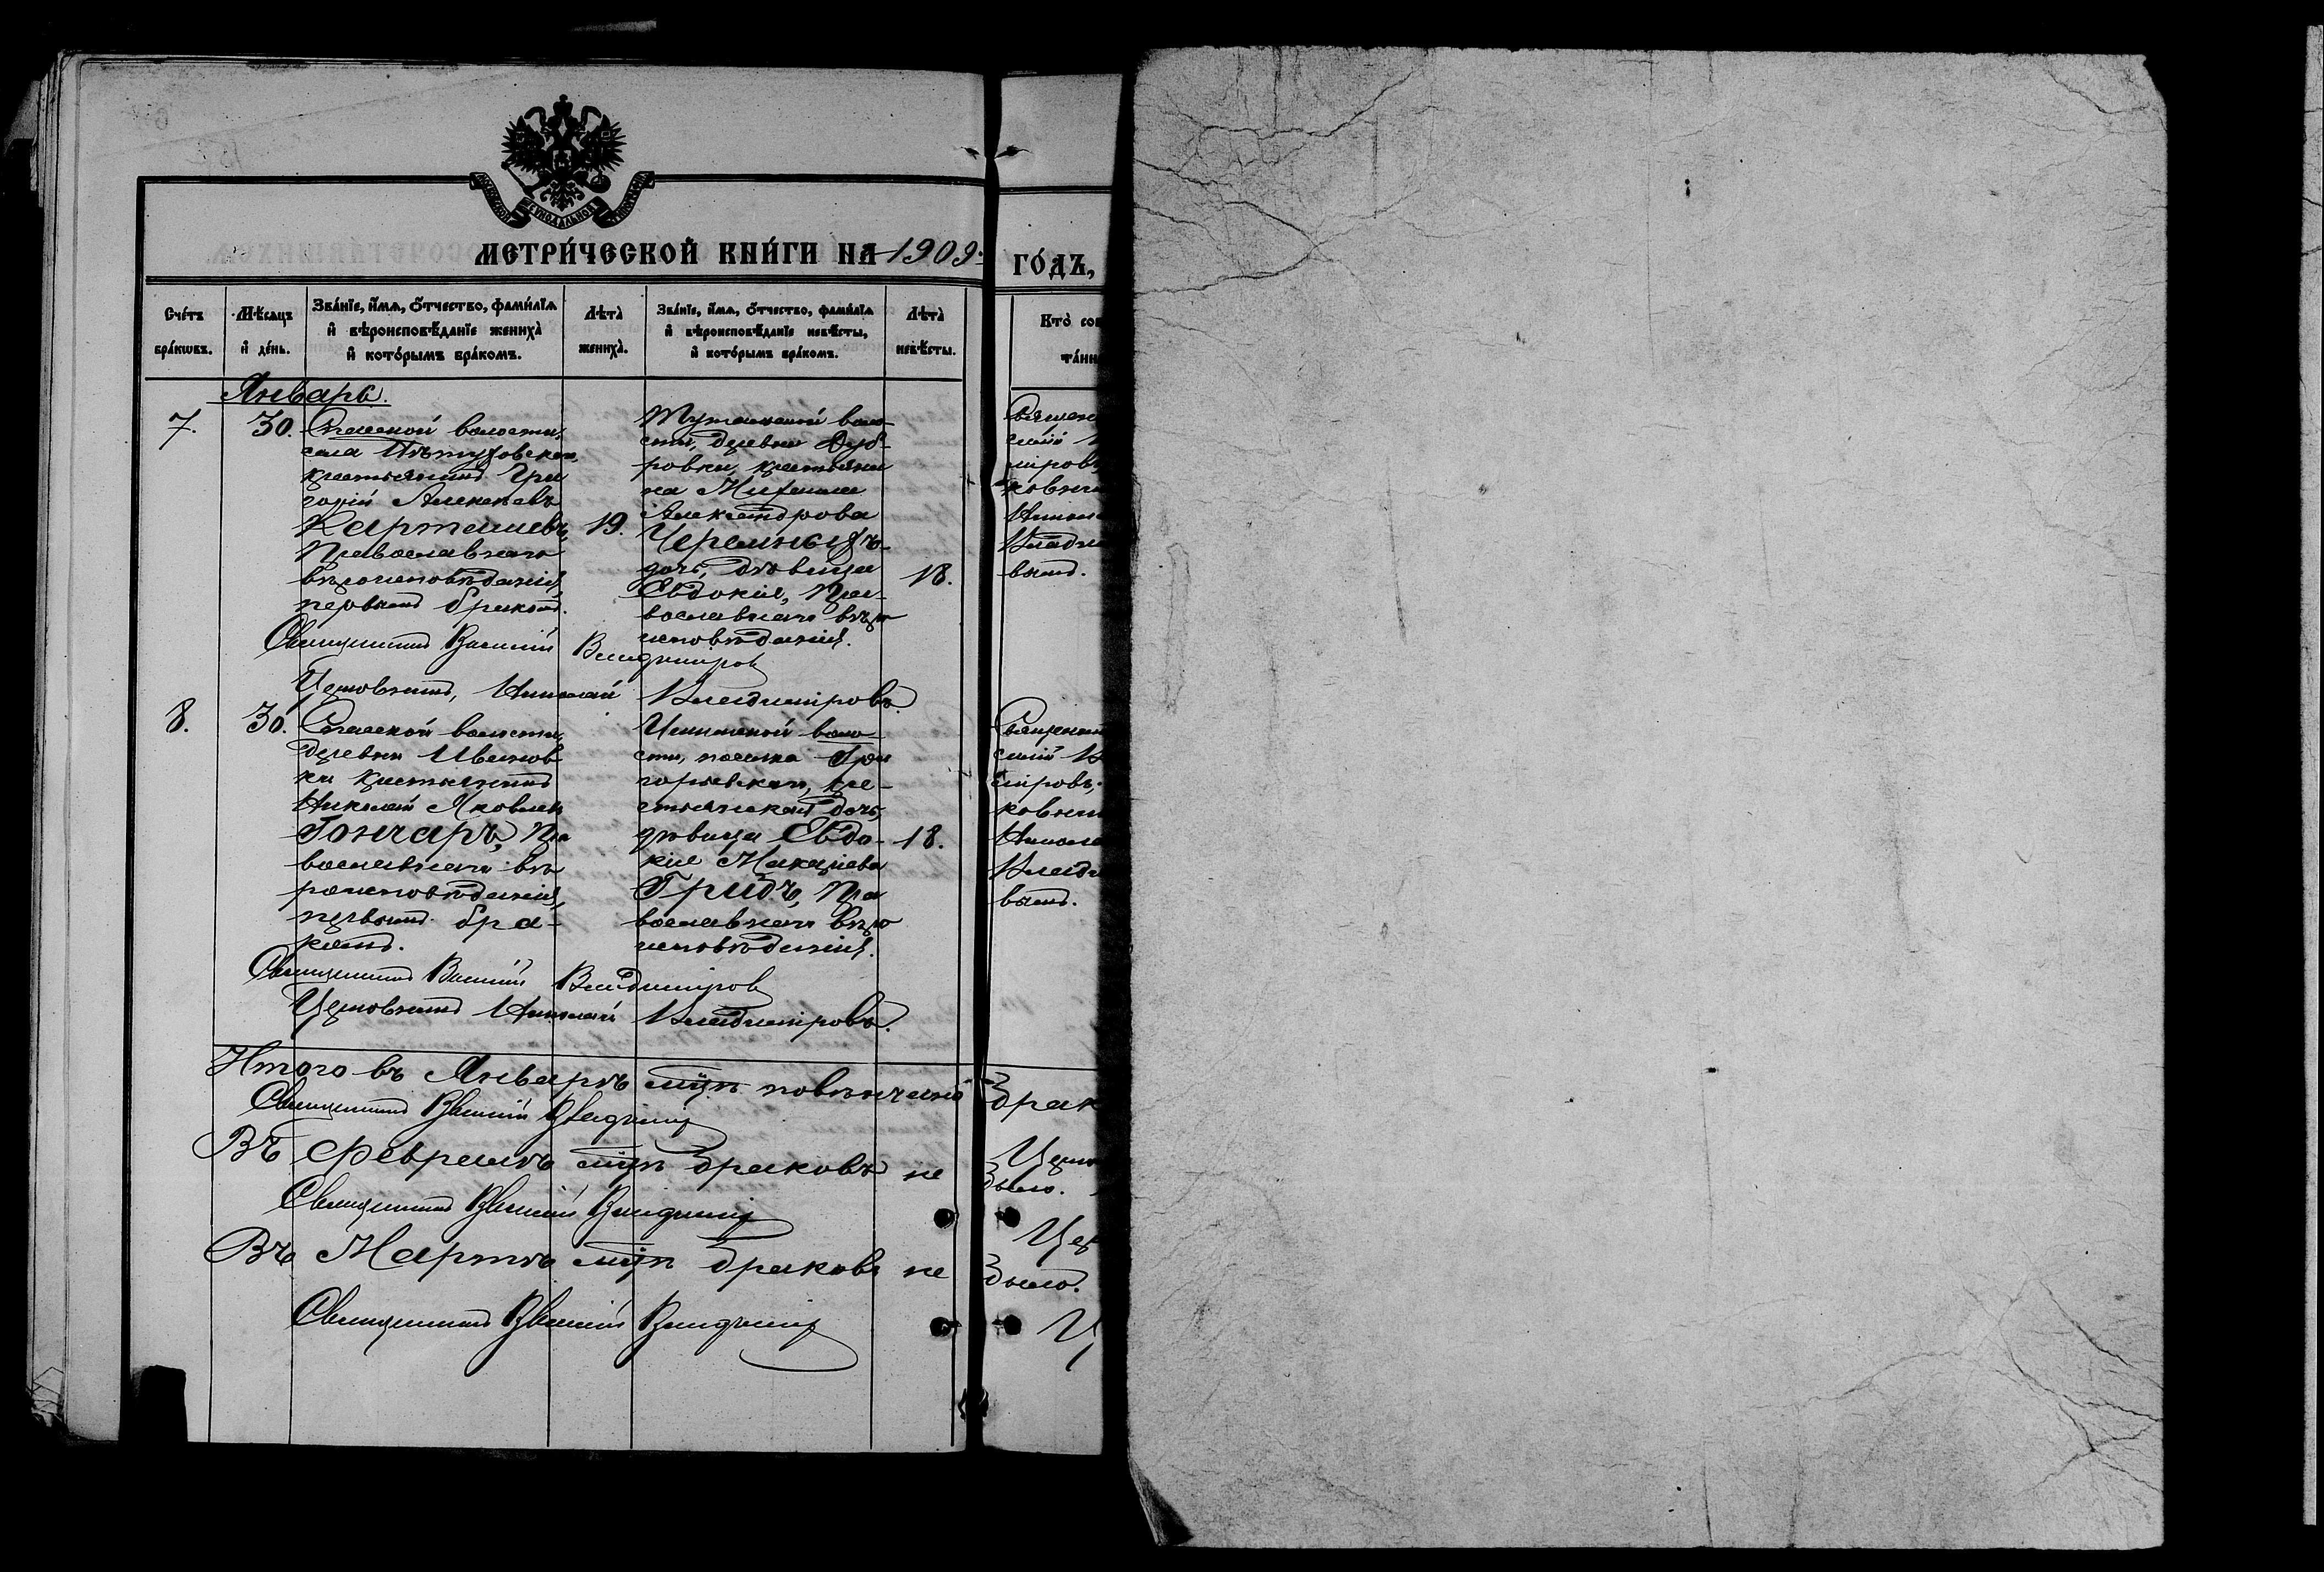 МЕТРИ́ЧЕСКОЙ КНИ́ГИ НА 1909 г. ГО́ДЪ,
Сче́тъ бра́кωвъ.
Мѣ́сяцъ и҆ де́нь.
Зва́нїе, и҆́мѧ, ѻ҆́тчество, фами́лїѧ
и҆ вѣроисповѣ́данїе жениха̀
и҆ кото́рымъ бра́комъ.
Лѣта̀
жениха̀.
Зва́нїе, и҆́мѧ, ѻ҆́тчество, фами́лїѧ
и҆ вѣроисповѣ́данїе невѣ́сты,
и҆ кото́рымъ бра́комъ.
Лѣта̀
невѣ́сты.
Кто̀ сов
та́инс
Январь.
7.
30.
Спасской волости,
села
крестьянинъ Гри
горій Алексѣевъ
Карташевъ,
Православнаго
вѣроисповѣданія,
первымъ бракомъ.
19.
воло-
сти, деревни Дуб-
ровки, крестьяни
на Михаила
Александрова
Черемныхъ
дочь, дѣвица
Евдокія, Пра-
вославнаго вѣро
исповѣданія.
18.
Священ
сілій В
міровъ
ковник
Никола
Владим
вымъ.
Священникъ Василій Владиміровъ
Церковникъ, Николай Владиміровъ.
8.
30.
Спасской волости,
деревни Иванов
ки крестьянинъ
Николай Яковлевъ
Гончаръ, Пра
вославнаго вѣ
роисповѣданія,
первымъ бра-
комъ.
воло-
сти, поселка Гри
горьевскаго, кре-
стьянская дочь,
дѣвица Евдо-
кія Макаріева
Гридъ, Пра
вославнаго вѣро
исповѣданія.
18.
Священник
сілій Вл
міровъ,
ковник
Никола
Влади
вымъ.
Священникъ Василій Владиміровъ
Церковникъ Николай Владиміровъ.
Итого въ Январѣ мцѣ повѣнчано брак
Священникъ Василій Владиміровъ
Въ Февралѣ мцѣ браковъ не было.
Священникъ Василій Владиміровъ
Въ Мартѣ мцѣ браковъ не было.
Священникъ Василій Владиміровъ